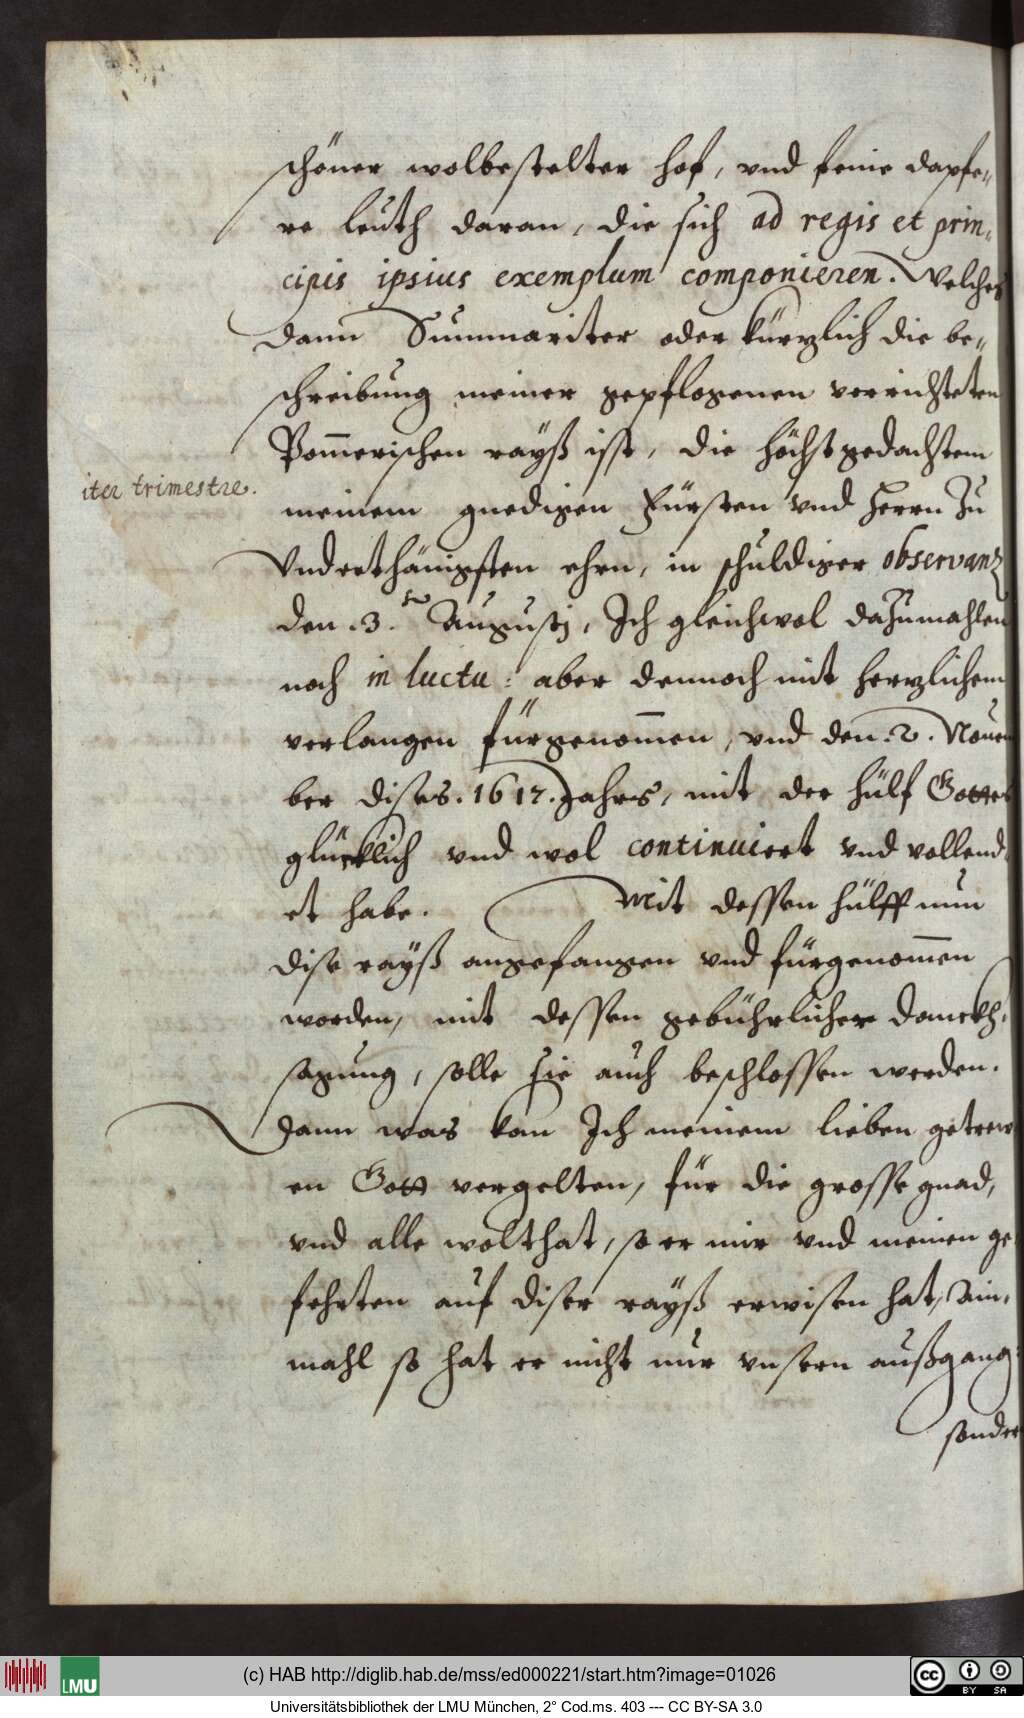 schöner wolbestelter hof, vnd feine dapfe-
re leüth daran, die sich ad regis et prin-
cipis ipsius exemplum componieren. Welches
dann Summariter oder kürzlich die be-
schreibung meiner gepflogenen verrichteten
Pom̄erischen rayß ist, die höchstgedachtem
iter trimestre.
meinem gnedigen Fürsten vnd herrn zu
Vnderthänigsten ehrn, in schuldiger observanz
den .3. Augustj, Ich gleichwol dazumahlen
noch in luctu: aber dennoch mit herzlichem
verlangen fürgenom̄en, vnd den .2. Novem
ber dises .1617. Jahrs, mit der hülf Gottes
glücklich vnd wol continuiert vnd vollend-
et habe. Mit dessen hülff nun
dise rayß angefangen vnd fürgenom̄en
worden, mit dessen gebührlicher danckh-
sagung, solle sie auch beschlossen werden.
Dann was kan Ich meinem lieben getrew
en Gott vergelten, für die grosse gnad,
vnd alle wolthat, so er mir vnd meinen ge
fehrten auf diser rayß erwisen hat, Ain-
mahl so hat er nicht nur vnsern außgang
sonder
(c) HAB http://diglib.hab.de/mss/ed000221/start.htm?image=01026
LMU
CC BY SA
Universitätsbibliothek der LMU München, 2° Cod.ms. 403 --- CC BY-SA 3.0